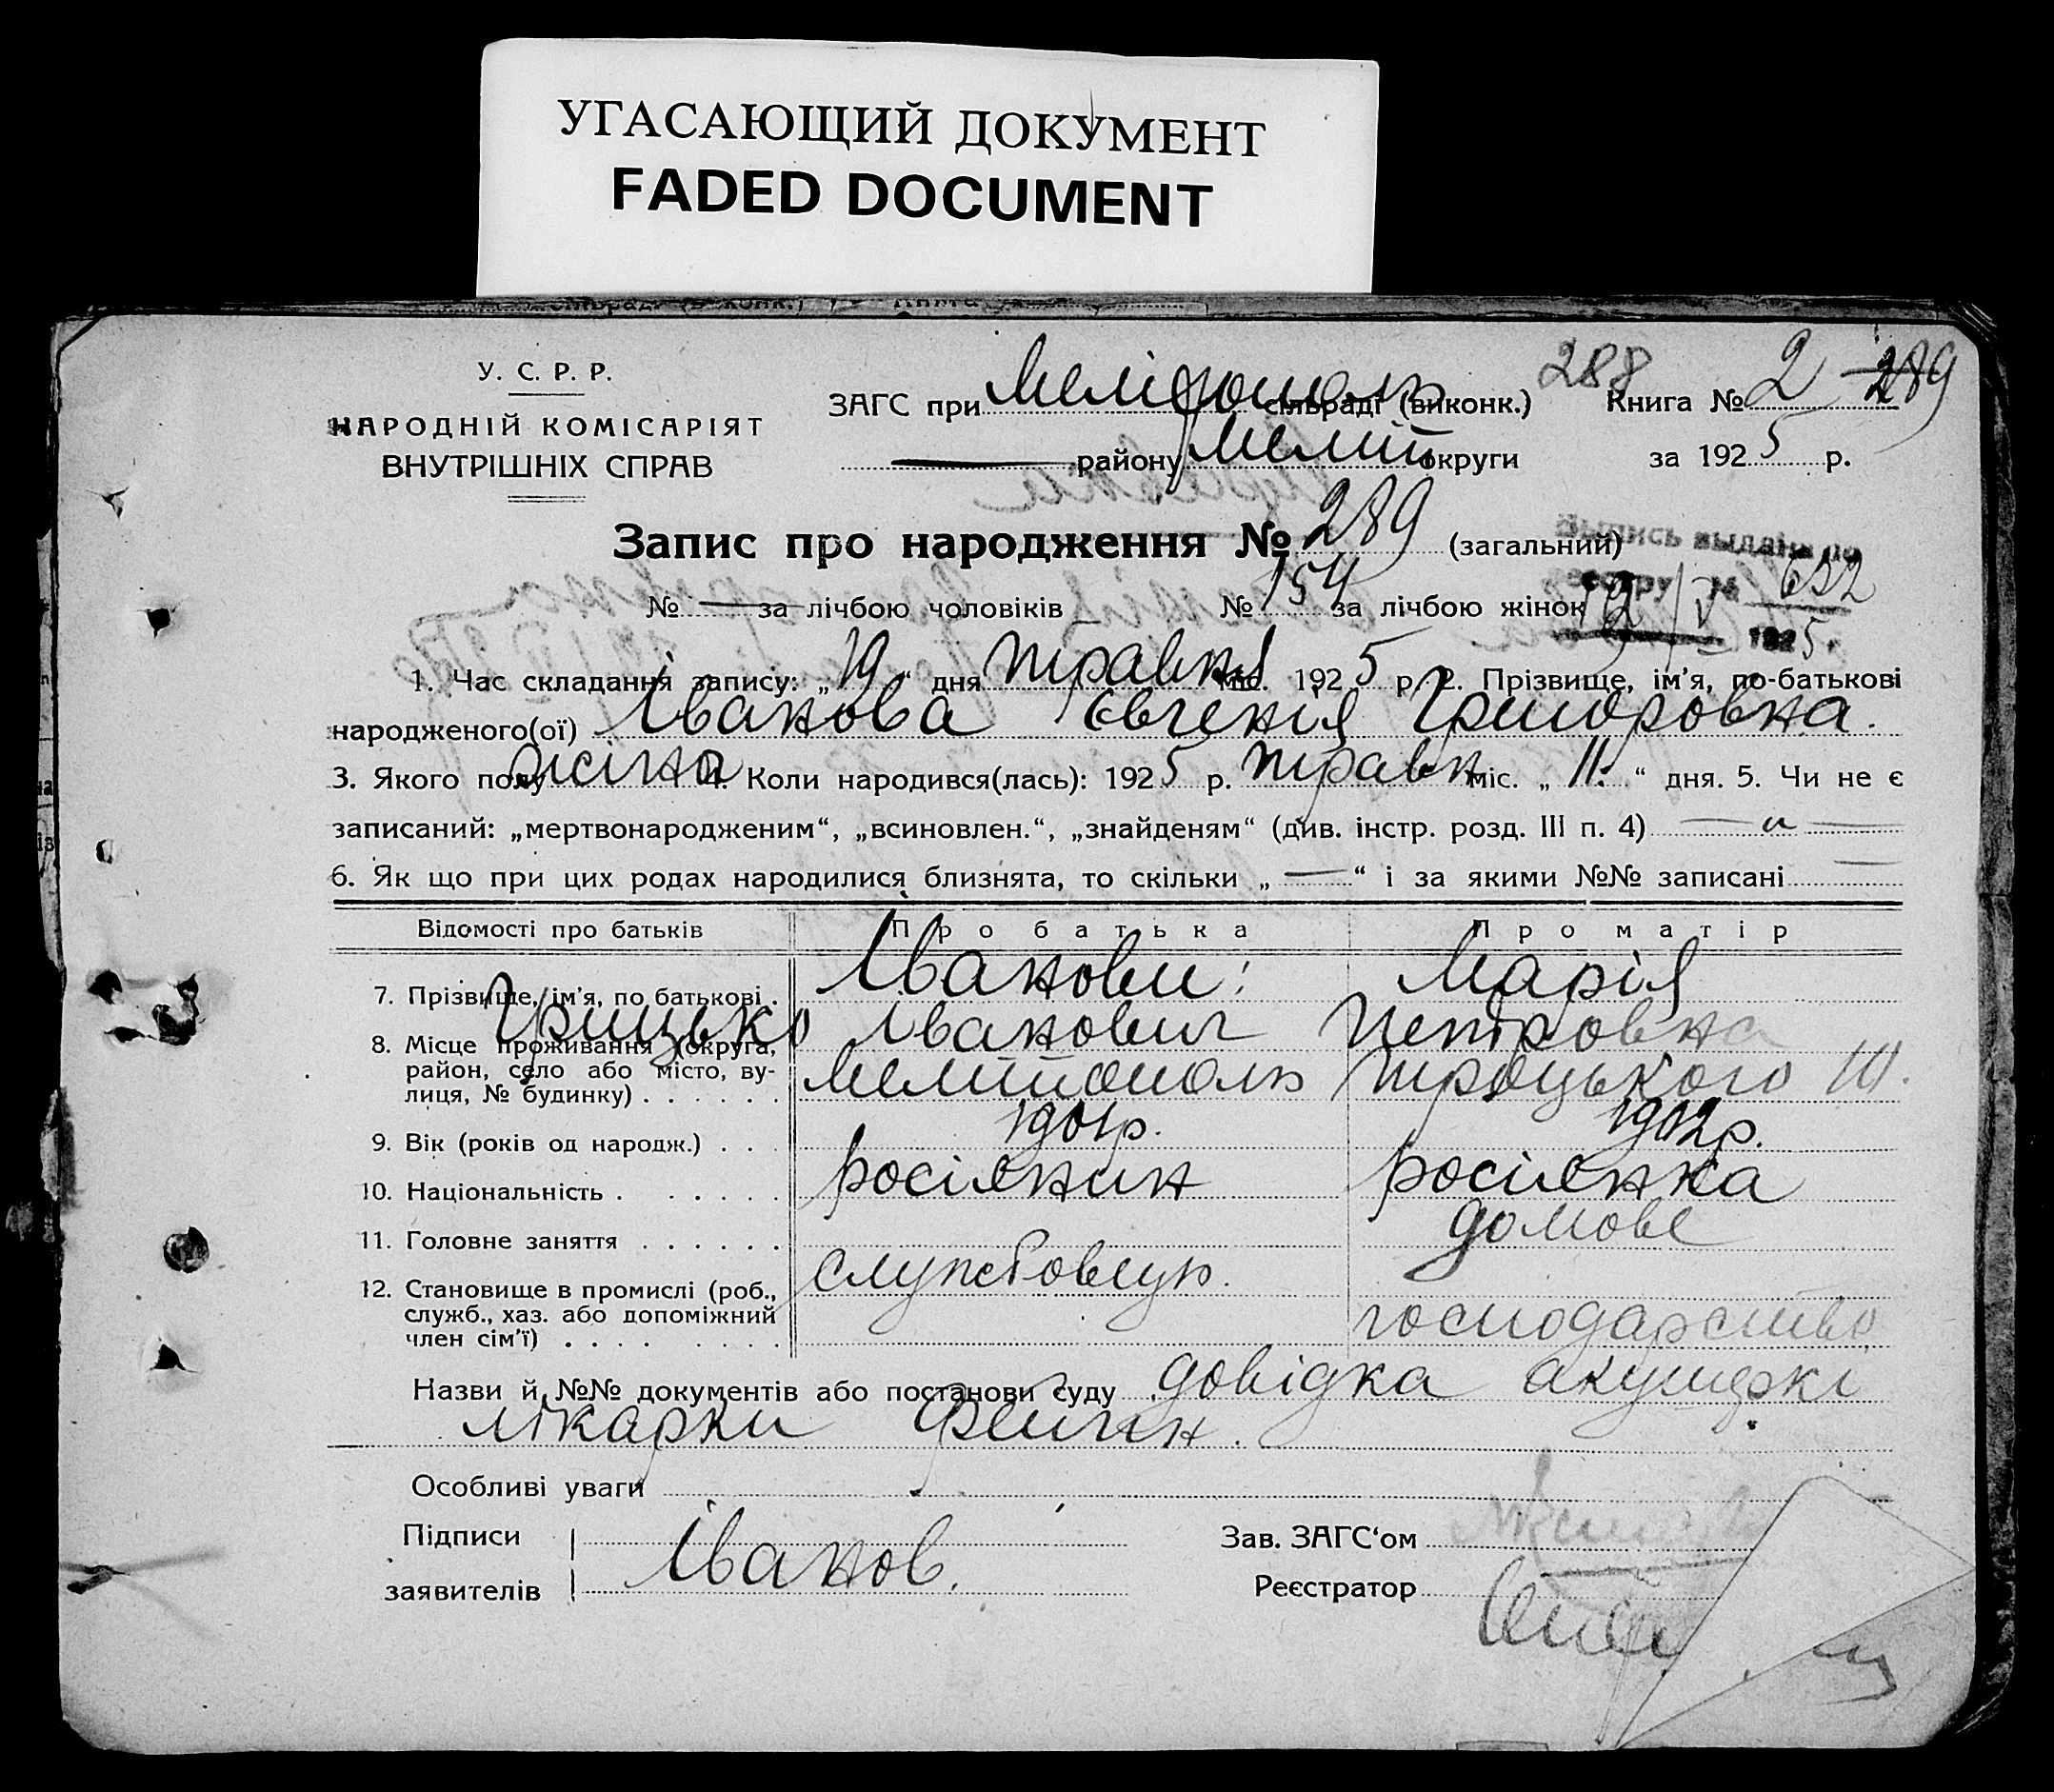 УГАСАЮЩИЙ ДОКУМЕНТ
FADED DOCUMENT
У. С. Р. Р.
НАРОДНІЙ КОМІСАРІЯТ
ВНУТРІШНІХ СПРАВ
ЗАГС при Мелітополь сільраді (виконк.)
288
Книга № 2 289
району Меліт округи
за 1925 р.
Запис про народження № 289 (загальний)
Выпись выдана по
реестру № 632
19/V 1925 г.
№ — за лічбою чоловіків № 154 за лічбою жінок
1. Час складання запису: „19“ дня травня міс. 1925 р. 2. Прізвище, ім'я, по-батькові
народженого(ої) Іванова Євгенія Григоровна.
3. Якого полу жіноч 4. Коли народився(лась): 1925 р. травн міс. „11.“ дня. 5. Чи не є
записаний: „мертвонародженим“, „всиновлен.“, „знайденям“ (див. інстр. розд. III п. 4) — „ —
6. Як що при цих родах народилися близнята, то скільки „—“ і за якими №№ записані —
Відомості про батьків Про батька Про матір
7. Прізвище, ім'я, по батькові . Іванови: Марія
Грицько Іванович Петровна
8. Місце проживання (округа, район, село або місто, вулиця, № будинку) . . . . . . Мелітополь Троцького 111.
9. Вік (років од народж.) . . . 1901р. 1902р.
10. Національність . . . . . . росіянин росіянка
11. Головне заняття . . . . . . службовець. домове
12. Становище в промислі (роб., служб., хаз. або допоміжний член сім'ї) . . . . . . . . господарство
Назви й №№ документів або постанови суду довідка акушерки
лікарки Фейгин.
Особливі уваги
Підписи
заявителів Іванов.
Зав. ЗАГС'ом
Реєстратор